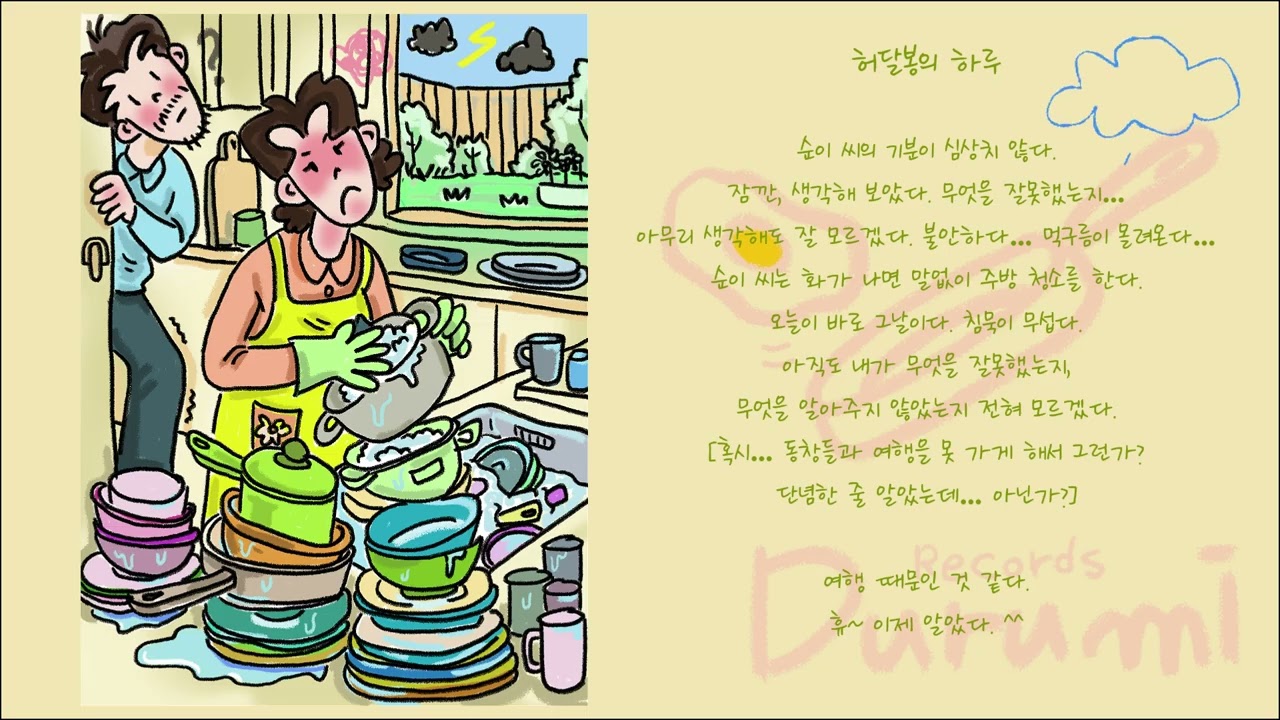 ?
허달봉의 하루
순이 씨의 기분이 심상치 않다.
잠깐, 생각해 보았다. 무엇을 잘못했는지...
아무리 생각해도 잘 모르겠다. 불안하다... 먹구름이 몰려온다...
순이 씨는 화가 나면 말없이 주방 청소를 한다.
오늘이 바로 그날이다. 침묵이 무섭다.
아직도 내가 무엇을 잘못했는지,
무엇을 알아주지 않았는지 전혀 모르겠다.
[혹시... 동창들과 여행을 못 가게 해서 그런가?
단념한 줄 알았는데... 아닌가?]
여행 때문인 것 같다.
휴~ 이제 알았다. ^^
Records
Durumi